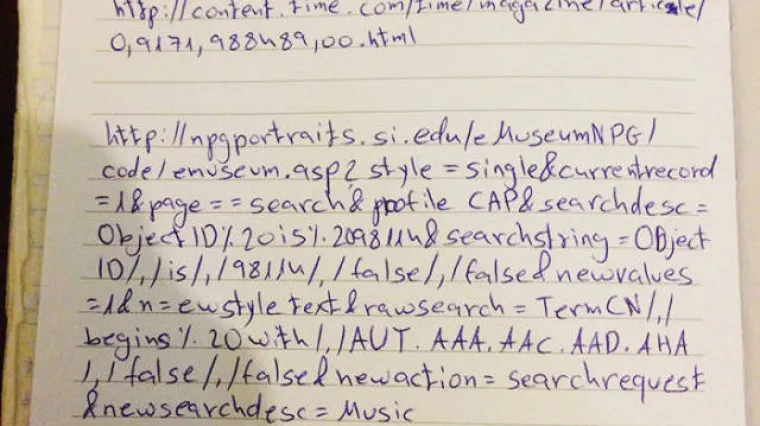 http://content.time.com/time/magazine/article/
0,9171,988489,00.html
http://npgportraits.si.edu/eMuseumNPG/
code/emuseum.asp?style=single&currentrecord
=1&page==search&profile CAP&searchdesc=
Object ID%20is%209811u&searchstring=Object
ID/,/is/,/9811u/,/false/,/false&newvalues
=1&n=ewstyle text&rawsearch=TermCN/,/
begins%20with/,/AUT.AAA.AAC.AAD.AHA
/,/false/,/false&newaction=searchrequest
&newsearchdesc=Music